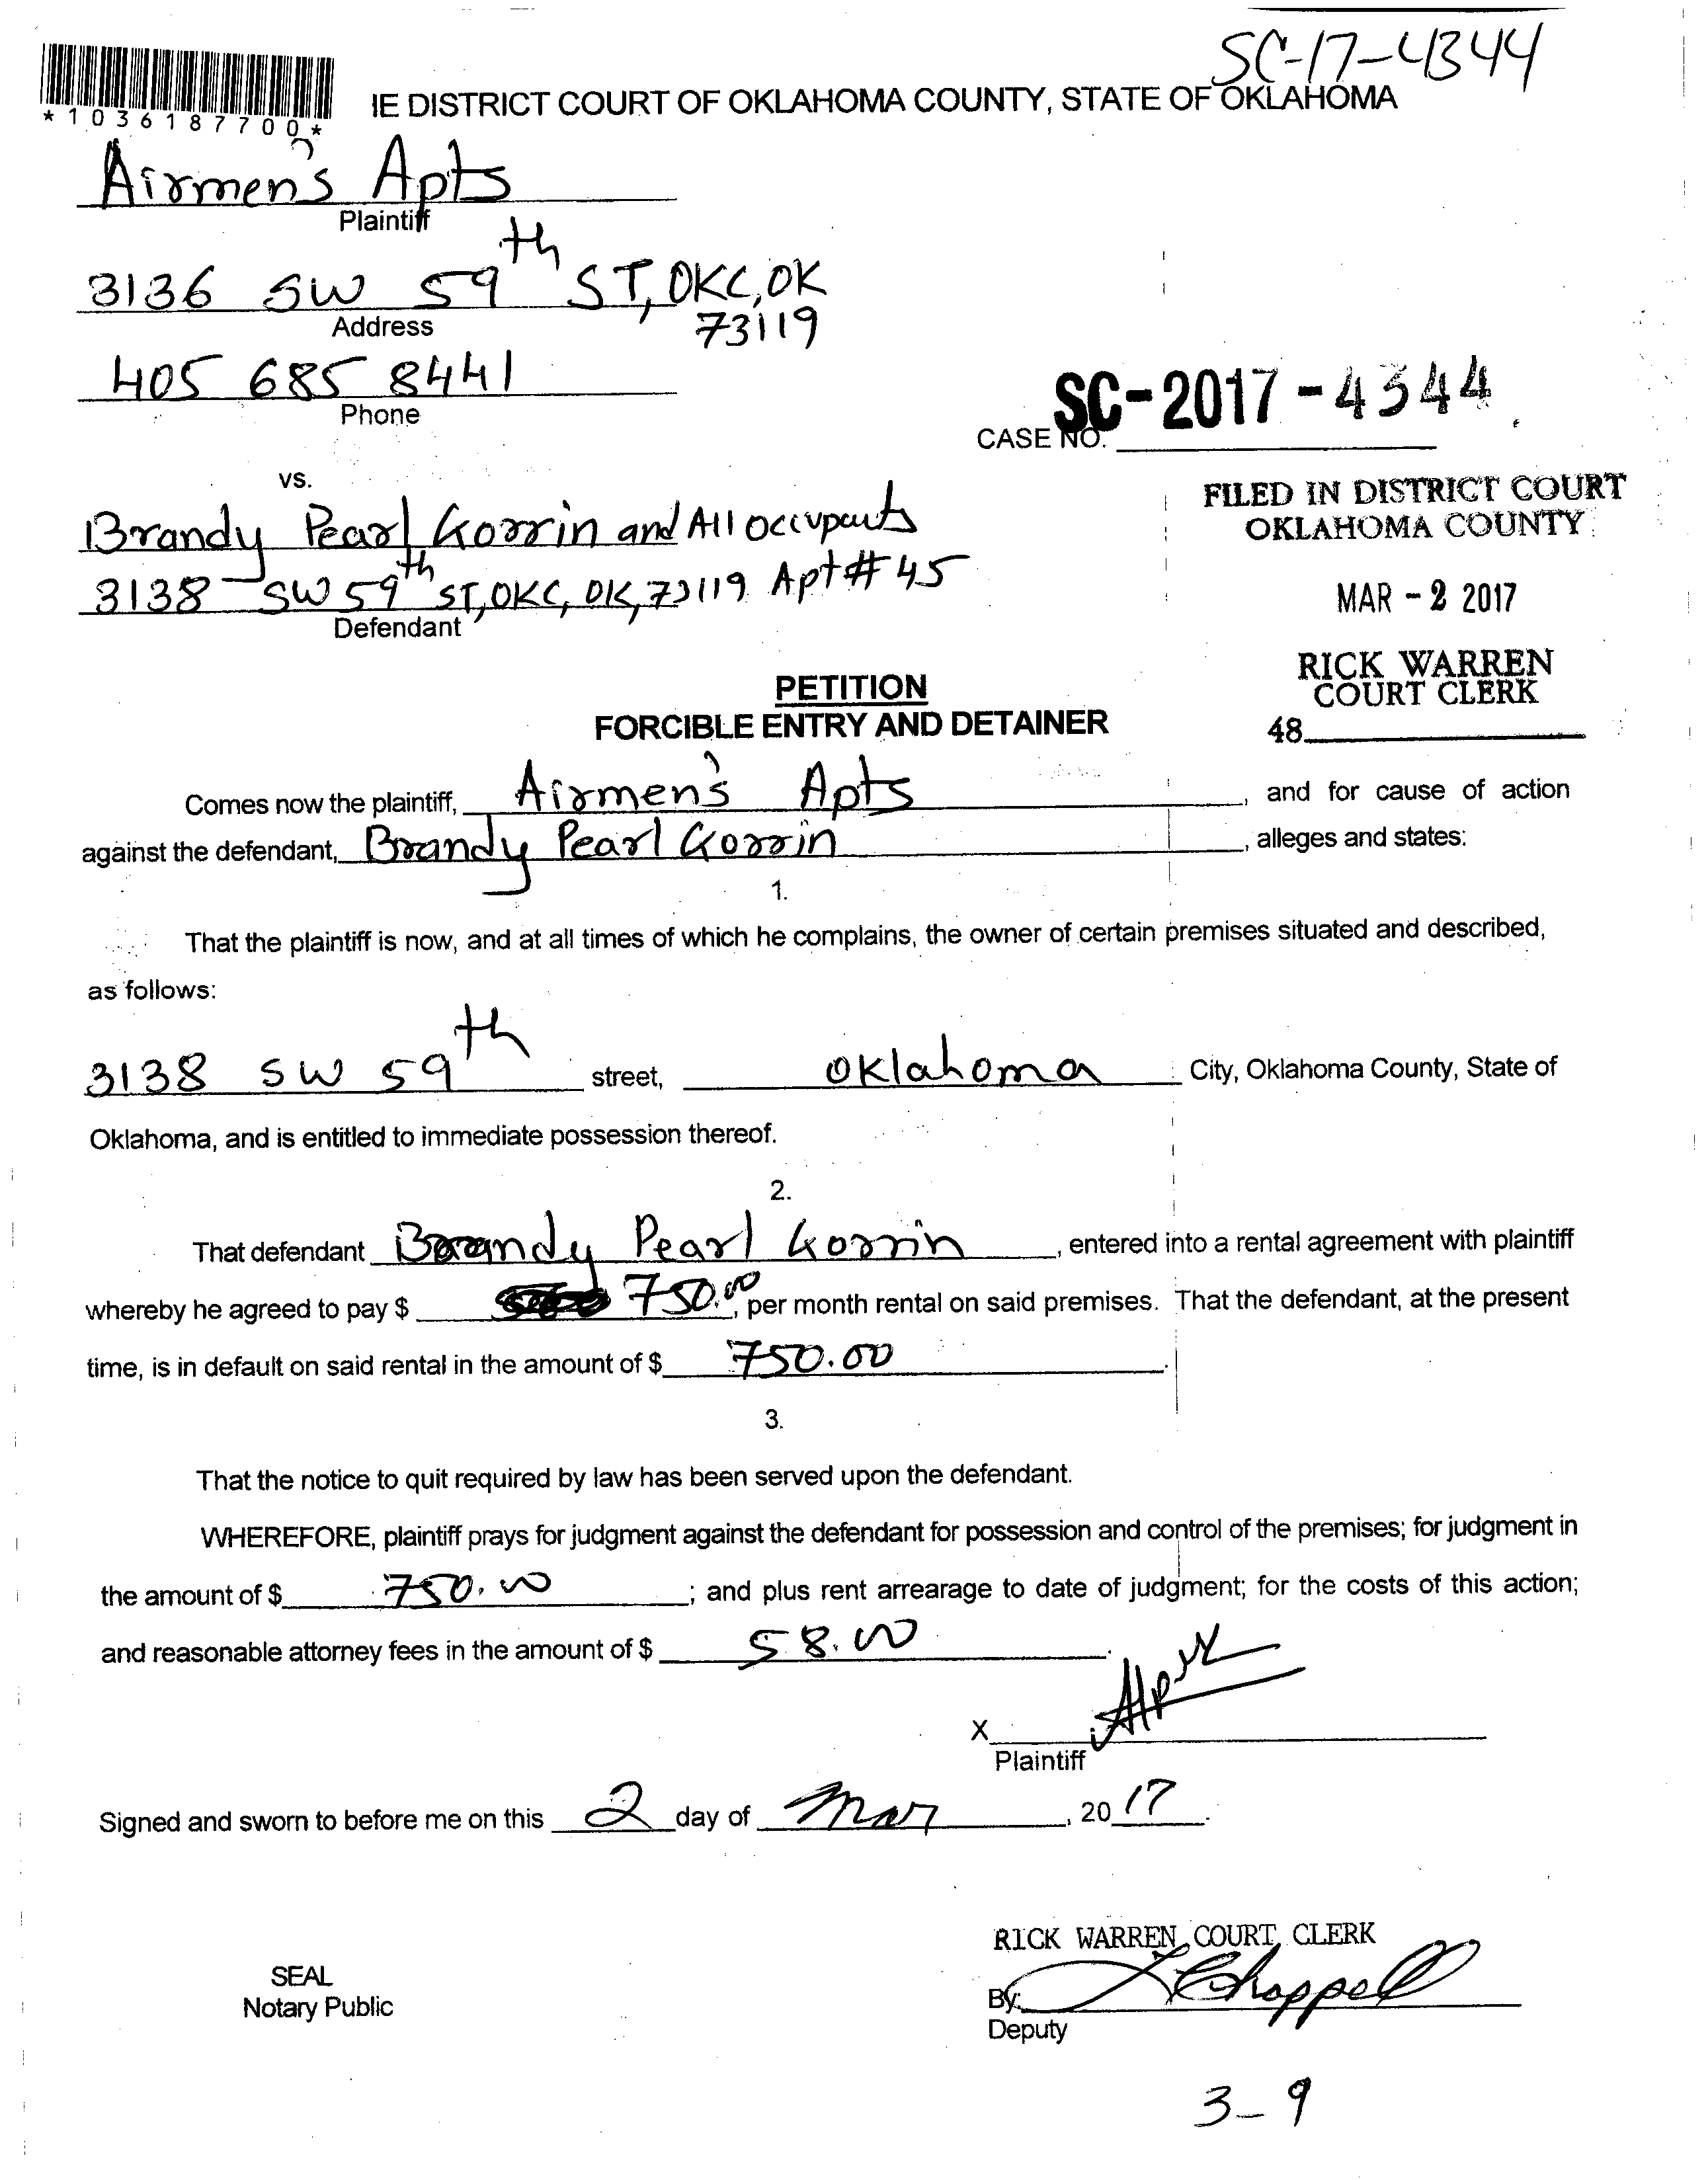 SC-17-4344
*1036187700*
IE DISTRICT COURT OF OKLAHOMA COUNTY, STATE OF OKLAHOMA
Airmen's Apts
Plaintiff
3136 SW 59th ST, OKC, OK
73119
Address
405 685 8441
Phone
SC-2017-4344
CASE NO.
vs.
Brandy Pearl Gorrin and All Occupants
3138 SW 59th ST, OKC, OK, 73119 Apt # 45
Defendant
FILED IN DISTRICT COURT
OKLAHOMA COUNTY
MAR - 2 2017
RICK WARREN
COURT CLERK
48
PETITION
FORCIBLE ENTRY AND DETAINER
Comes now the plaintiff, Airmen's Apts, and for cause of action
against the defendant, Brandy Pearl Gorrin, alleges and states:
1.
That the plaintiff is now, and at all times of which he complains, the owner of certain premises situated and described,
as follows:
3138 SW 59th street, Oklahoma City, Oklahoma County, State of
Oklahoma, and is entitled to immediate possession thereof.
2.
That defendant Brandy Pearl Gorrin, entered into a rental agreement with plaintiff
whereby he agreed to pay $ 750.00, per month rental on said premises. That the defendant, at the present
time, is in default on said rental in the amount of $ 750.00.
3.
That the notice to quit required by law has been served upon the defendant.
WHEREFORE, plaintiff prays for judgment against the defendant for possession and control of the premises; for judgment in
the amount of $ 750.00; and plus rent arrearage to date of judgment; for the costs of this action;
and reasonable attorney fees in the amount of $ 58.00.
X
Plaintiff
Signed and sworn to before me on this 2 day of Mar, 2017.
RICK WARREN, COURT CLERK
SEAL
Notary Public
By: Chappell
Deputy
3-9